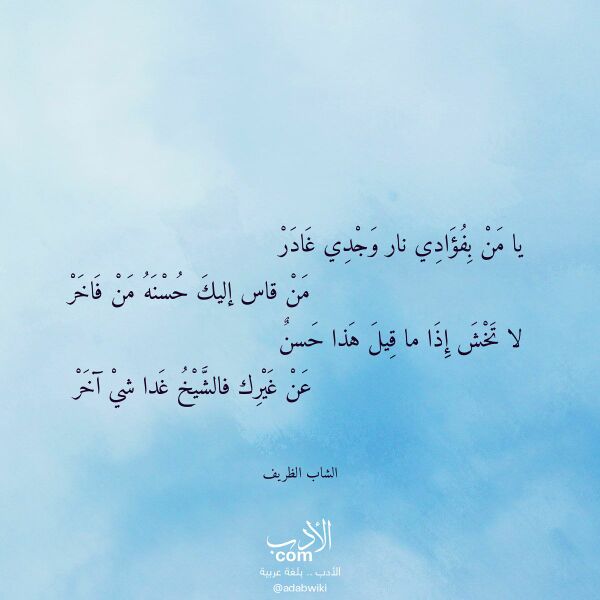 يا مَنْ بِفُؤَادِي نار وَجْدِي غَادَرْ
مَنْ قاس إليكَ حُسْنَهُ مَنْ فَاخَرْ
لا تَخْشَ إِذَا ما قِيلَ هَذا حَسنٌ
عَنْ غَيْرِك فالشَّيْخُ غَدا شيْ آخَرْ
الشاب الظريف
الأدب
com
الأدب .. بلغة عربية
@adabwiki